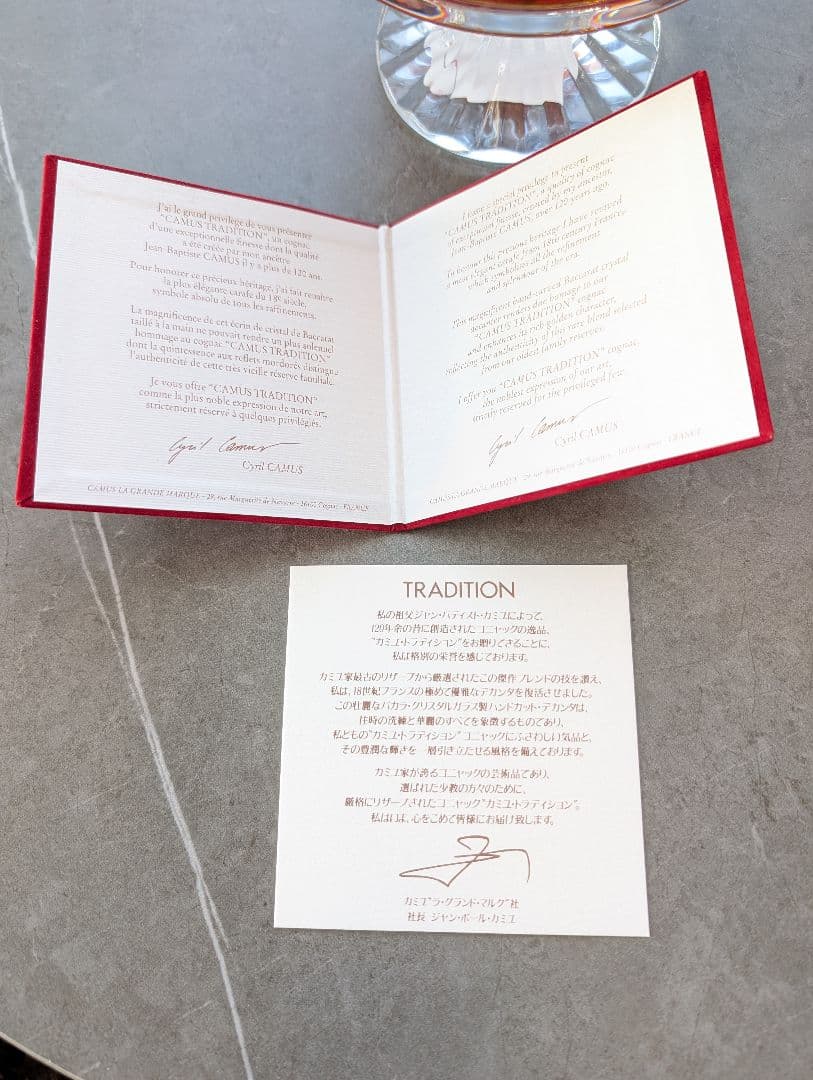 J'ai le grand privilège de vous présenter
"CAMUS TRADITION", un cognac
d'une exceptionnelle finesse dont la qualité
a été créée par mon ancêtre
Jean-Baptiste CAMUS il y a plus de 120 ans.
Pour honorer ce précieux héritage, j'ai fait renaître
la plus élégante carafe du 18e siècle,
symbole absolu de tous les raffinements.
La magnificence de cet écrin de cristal de Baccarat
taillé à la main ne pouvait rendre un plus solennel
hommage au cognac "CAMUS TRADITION"
dont la quintessence aux reflets mordorés distingue
l'authenticité de cette très vieille réserve familiale.
Je vous offre "CAMUS TRADITION"
comme la plus noble expression de notre art,
strictement réservé à quelques privilégiés.
Cyril Camus
Cyril CAMUS
CAMUS LA GRANDE MARQUE - 29, rue Marguerite de Navarre - 16100 Cognac - FRANCE
I have a special privilege to present
"CAMUS TRADITION", a quality of cognac
of exceptional finesse, created by my ancestor,
Jean-Baptiste CAMUS, over 120 years ago.
To honour this precious heritage I have revived
a most elegant carafe from 18th century France
which symbolizes all the refinement
and splendour of the era.
This magnificent hand-carved Baccarat crystal
decanter renders due homage to our
"CAMUS TRADITION" cognac
and enhances its rich golden character,
reflecting the authenticity of this rare blend selected
from our oldest family reserves.
I offer you "CAMUS TRADITION" cognac,
the noblest expression of our art,
strictly reserved for the privileged few.
Cyril Camus
Cyril CAMUS
CAMUS LA GRANDE MARQUE - 29, rue Marguerite de Navarre - 16100 Cognac - FRANCE
TRADITION
私の祖父ジャン・バティスト・カミユによって、
120年余の昔に創造されたコニャックの逸品、
"カミユ・トラディション"をお贈りできることに、
私は格別の栄誉を感じております。
カミユ家最古のリザーブから厳選されたこの傑作ブレンドの技を讃え、
私は、18世紀フランスの極めて優雅なデカンタを復活させました。
この壮麗なバカラ・クリスタルガラス製ハンドカット・デカンタは、
往時の洗練と華麗のすべてを象徴するものであり、
私どもの"カミユ・トラディション"コニャックにふさわしい気品と、
その豊潤な輝きを一層引き立たせる風格を備えております。
カミユ家が誇るコニャックの芸術品であり、
選ばれた少数の方々のために、
厳格にリザーブされたコニャック"カミユ・トラディション"。
私は、心をこめて皆様にお届け致します。
カミユ"ラ・グランド・マルク"社
社長 ジャン・ポール・カミユ